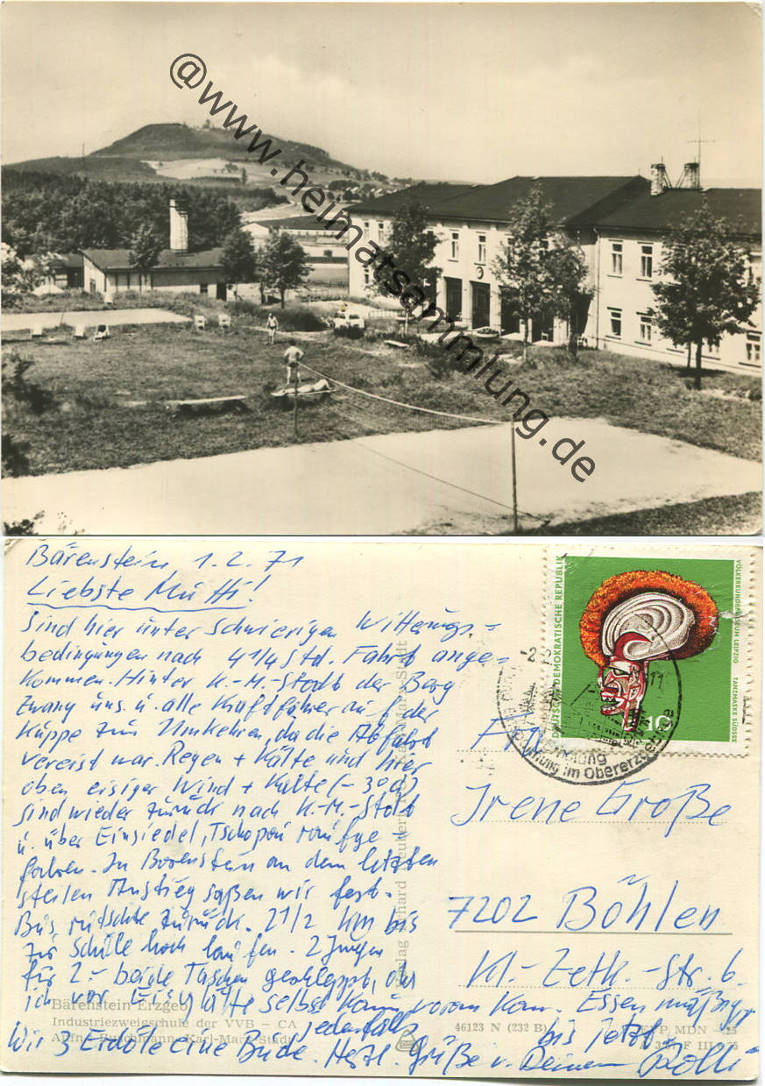 @www.heimatsammlung.de
Bärenstein 1.2.71
Liebste Mutti!
Sind hier unter schwierigen Witterungs-
bedingungen nach 4 1/4 Std. Fahrt ange-
kommen. Hinter K.-M.-Stadt der Berg
zwang uns u. alle Kraftfahrer auf der
Kuppe zum Umkehren, da die Abfahrt
vereist war. Regen + Kälte und hier
oben eisiger Wind + Kälte (- 3°)
sind wieder zurück nach K.-M.-Stadt
u. über Einsiedel, Tschopau raufge-
fahren. In Bärenstein an dem letzten
steilen Anstieg saßen wir fest.
Bus rutschte zurück. 2 1/2 km bis
zur Schule hoch laufen. 2 Jungen
für 2.- beide Taschen geschleppt, da
ich vor Glätte selbst kaum voran kam. Essen mäßig
jedenfalls bis jetzt.
Wir 3 Erdöle eine Bude. Herzl. Grüße v. Deinem Rolli
Bärenstein Erzgeb
Industriezweigschule der VVB - CA
Karl-Marx-Stadt
46123 N (232 B)
DEUTSCHE DEMOKRATISCHE REPUBLIK
VÖLKERKUNDEMUSEUM LEIPZIG
TANZMASKE SÜDSEE
10
im Obererzgebirge
Irene Große
7202 Böhlen
Kl.-Zetk.-Str. 6